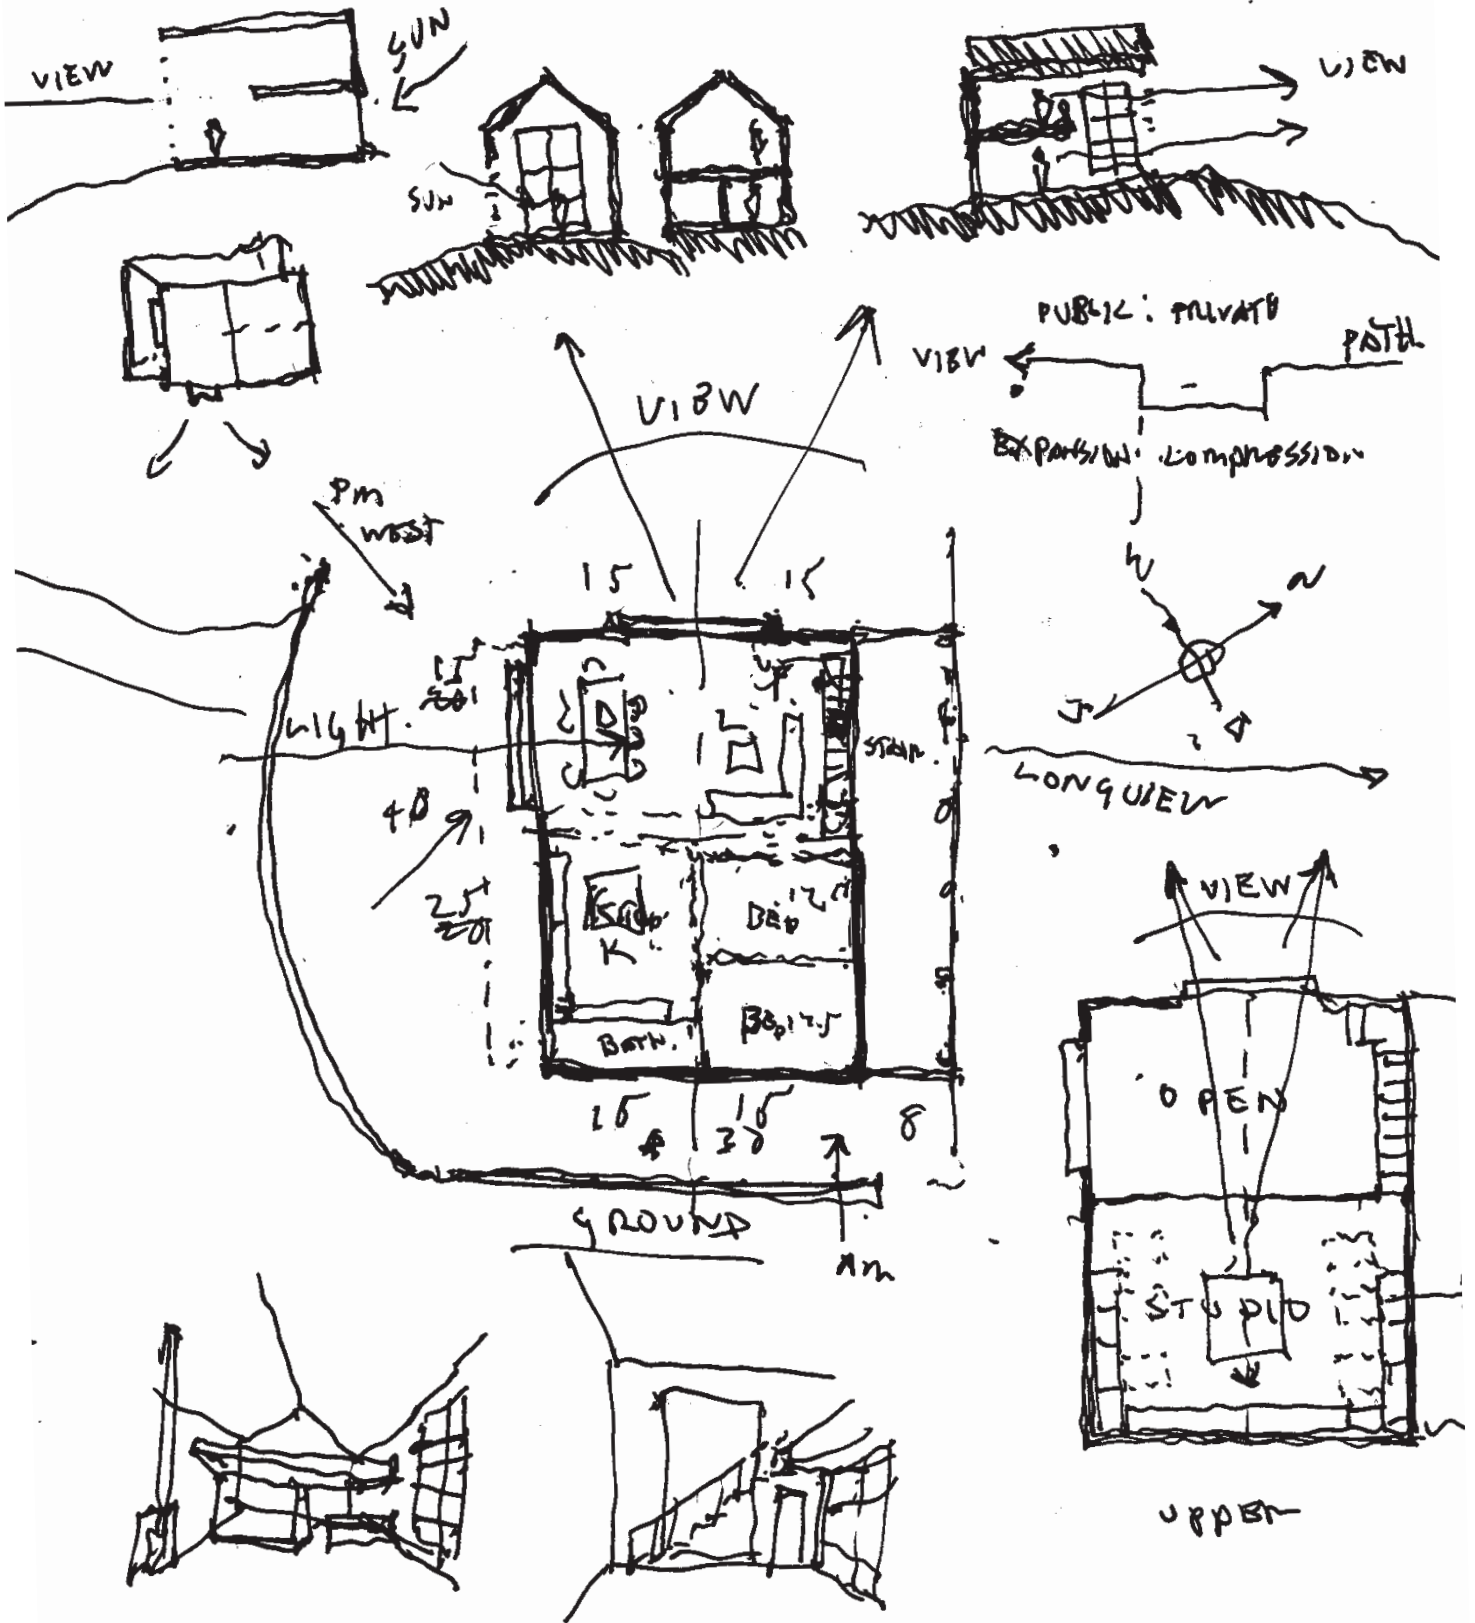 VIEW
SUN
SUN
VIEW
PUBLIC : PRIVATE
VIEW
PATH
EXPANSION. COMPRESSION
VIEW
PM
WEST
15
15
15
LIGHT.
D
L
STAIR
W
N
S
LONGVIEW
40
25
20
K
BED
12.5
BED 12.5
BATH.
15
15
30
8
GROUND
AM
VIEW
OPEN
STUDIO
UPPER